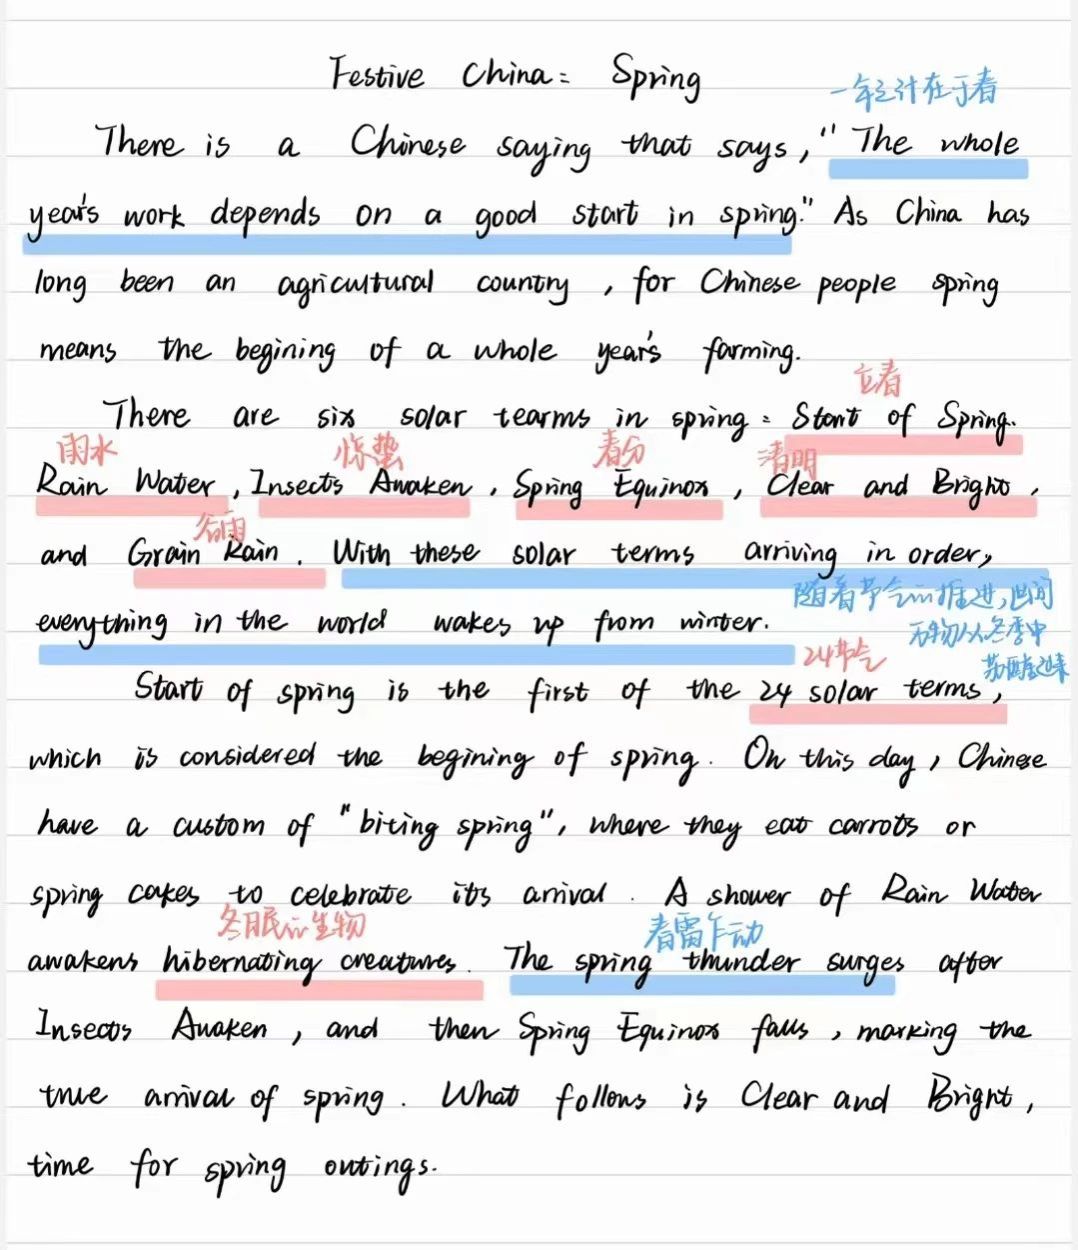 Festive China: Spring
一年之计在于春
There is a Chinese saying that says, "The whole
year's work depends on a good start in spring." As China has
long been an agricultural country, for Chinese people spring
means the begining of a whole year's farming.
立春
There are six solar tearms in spring: Start of Spring.
雨水 惊蛰 春分 清明
Rain Water, Insects Awaken, Spring Equinox, Clear and Bright,
谷雨
and Grain Rain. With these solar terms arriving in order,
随着节气的推进,世间
everything in the world wakes up from winter.
万物从冬季中
24节气 苏醒过来
Start of spring is the first of the 24 solar terms,
which is considered the begining of spring. On this day, Chinese
have a custom of "biting spring", where they eat carrots or
spring cakes to celebrate its arrival. A shower of Rain Water
冬眠的生物 春雷乍动
awakens hibernating creatures. The spring thunder surges after
Insects Awaken, and then Spring Equinox falls, marking the
true arrival of spring. What follows is Clear and Bright,
time for spring outings.